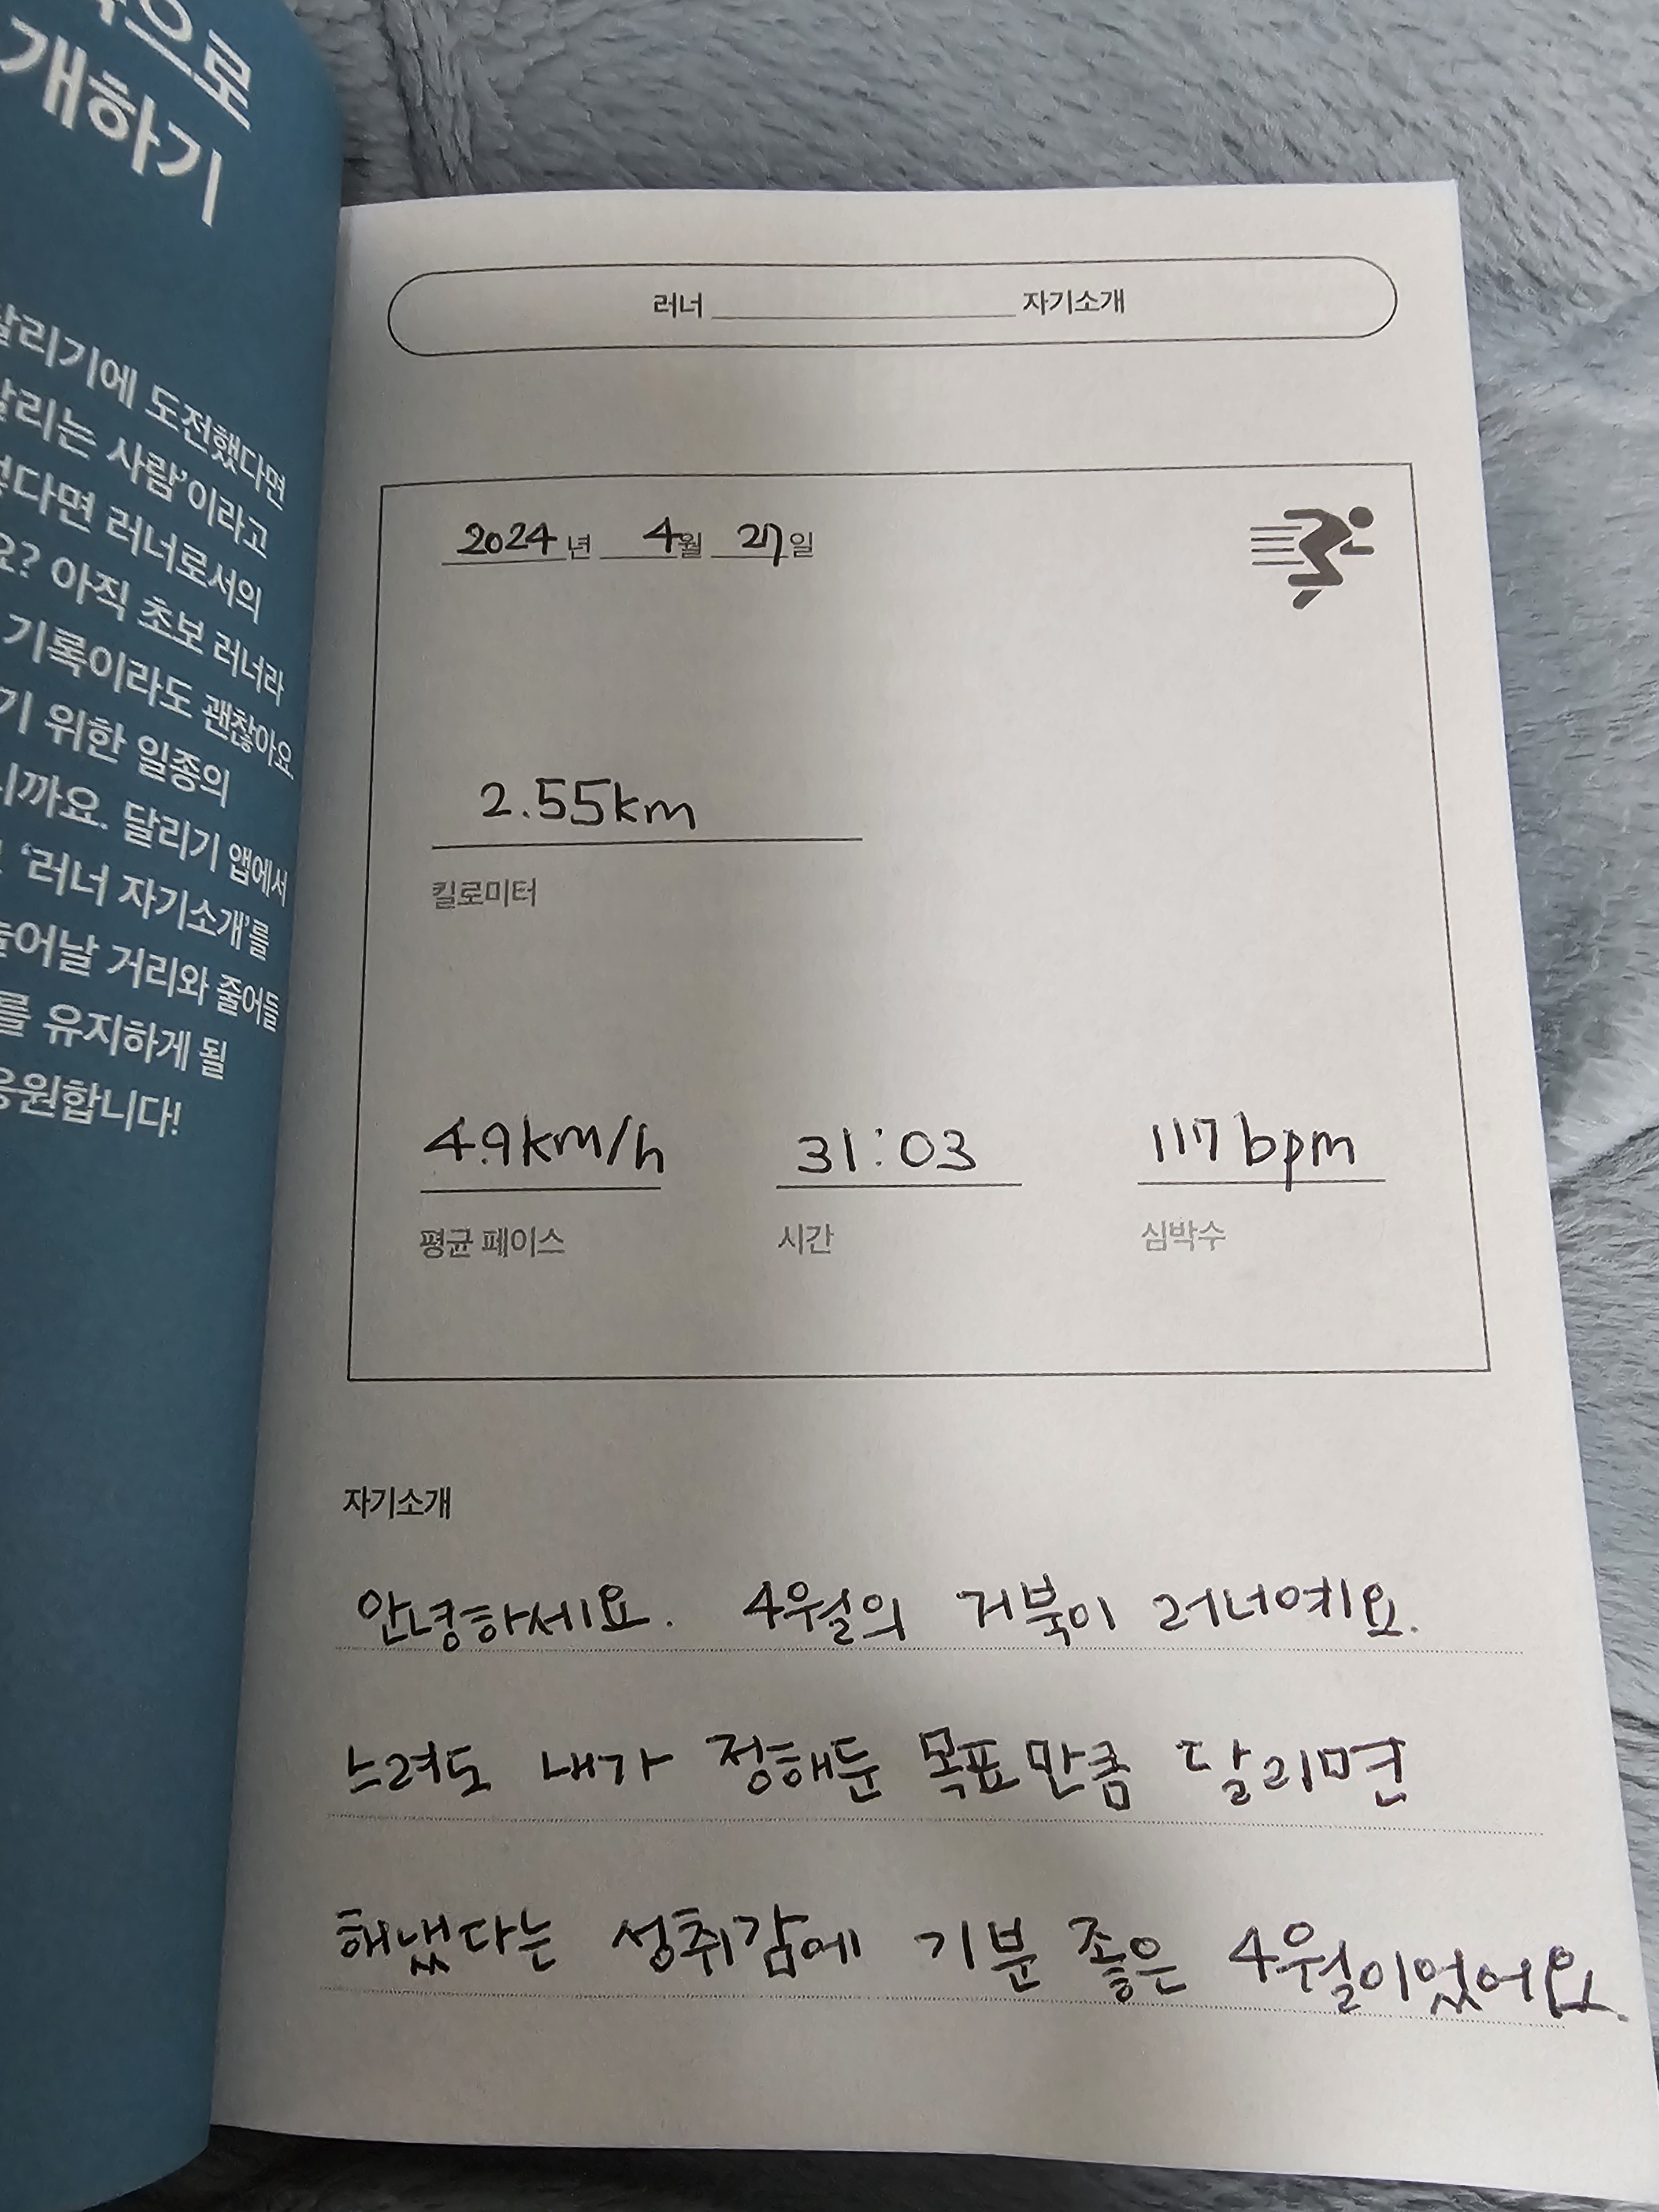 으로
개하기
달리기에 도전했다면
달리는 사람’이라고
다면 러너로서의
요? 아직 초보 러너라
기록이라도 괜찮아요.
기 위한 일종의
니까요. 달리기 앱에서
‘러너 자기소개’를
늘어날 거리와 줄어들
를 유지하게 될
응원합니다!
러너 자기소개
2024년 4월 27일
2.55km
킬로미터
4.9km/h 31:03 117bpm
평균 페이스 시간 심박수
자기소개
안녕하세요. 4월의 거북이 러너예요.
느려도 내가 정해둔 목표만큼 달리면
해냈다는 성취감에 기분 좋은 4월이었어요.